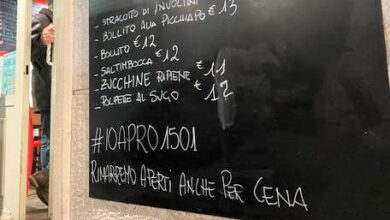 - STRACCETTO DI INVOLTINI
- BOLLITO ALLA PICCHIAPO' €13
- BOLLITO €12
- SALTIMBOCCA €12
- ZUCCHINE RIPIENE €11
- POLPETTE AL SUGO €12
#IOAPRO1501
RIMARREMO APERTI ANCHE PER CENA